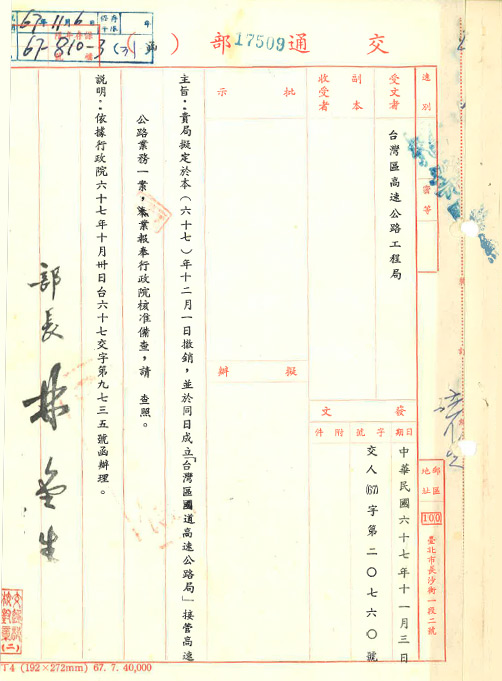 交通部（ ）
17509
67年11月6日
保存年限
67-810-3(八)
速別
密等
受文者
台灣區高速公路工程局
副本收受者
批示
擬辦
發文
日期
字號
附件
中華民國六十七年十一月三日
交人(67)字第二〇七六〇號
郵區地址
100
臺北市長沙街一段二號
主旨：貴局擬定於本（六十七）年十二月一日撤銷，並於同日成立「台灣區國道高速公路局」接管高速
公路業務一案，業報奉行政院核准備查，請 查照。
說明：依據行政院六十七年十月卅日台六十七交字第九七三五號函辦理。
部長 林金生
裝
訂
(二)
T4 (192×272mm) 67. 7. 40,000